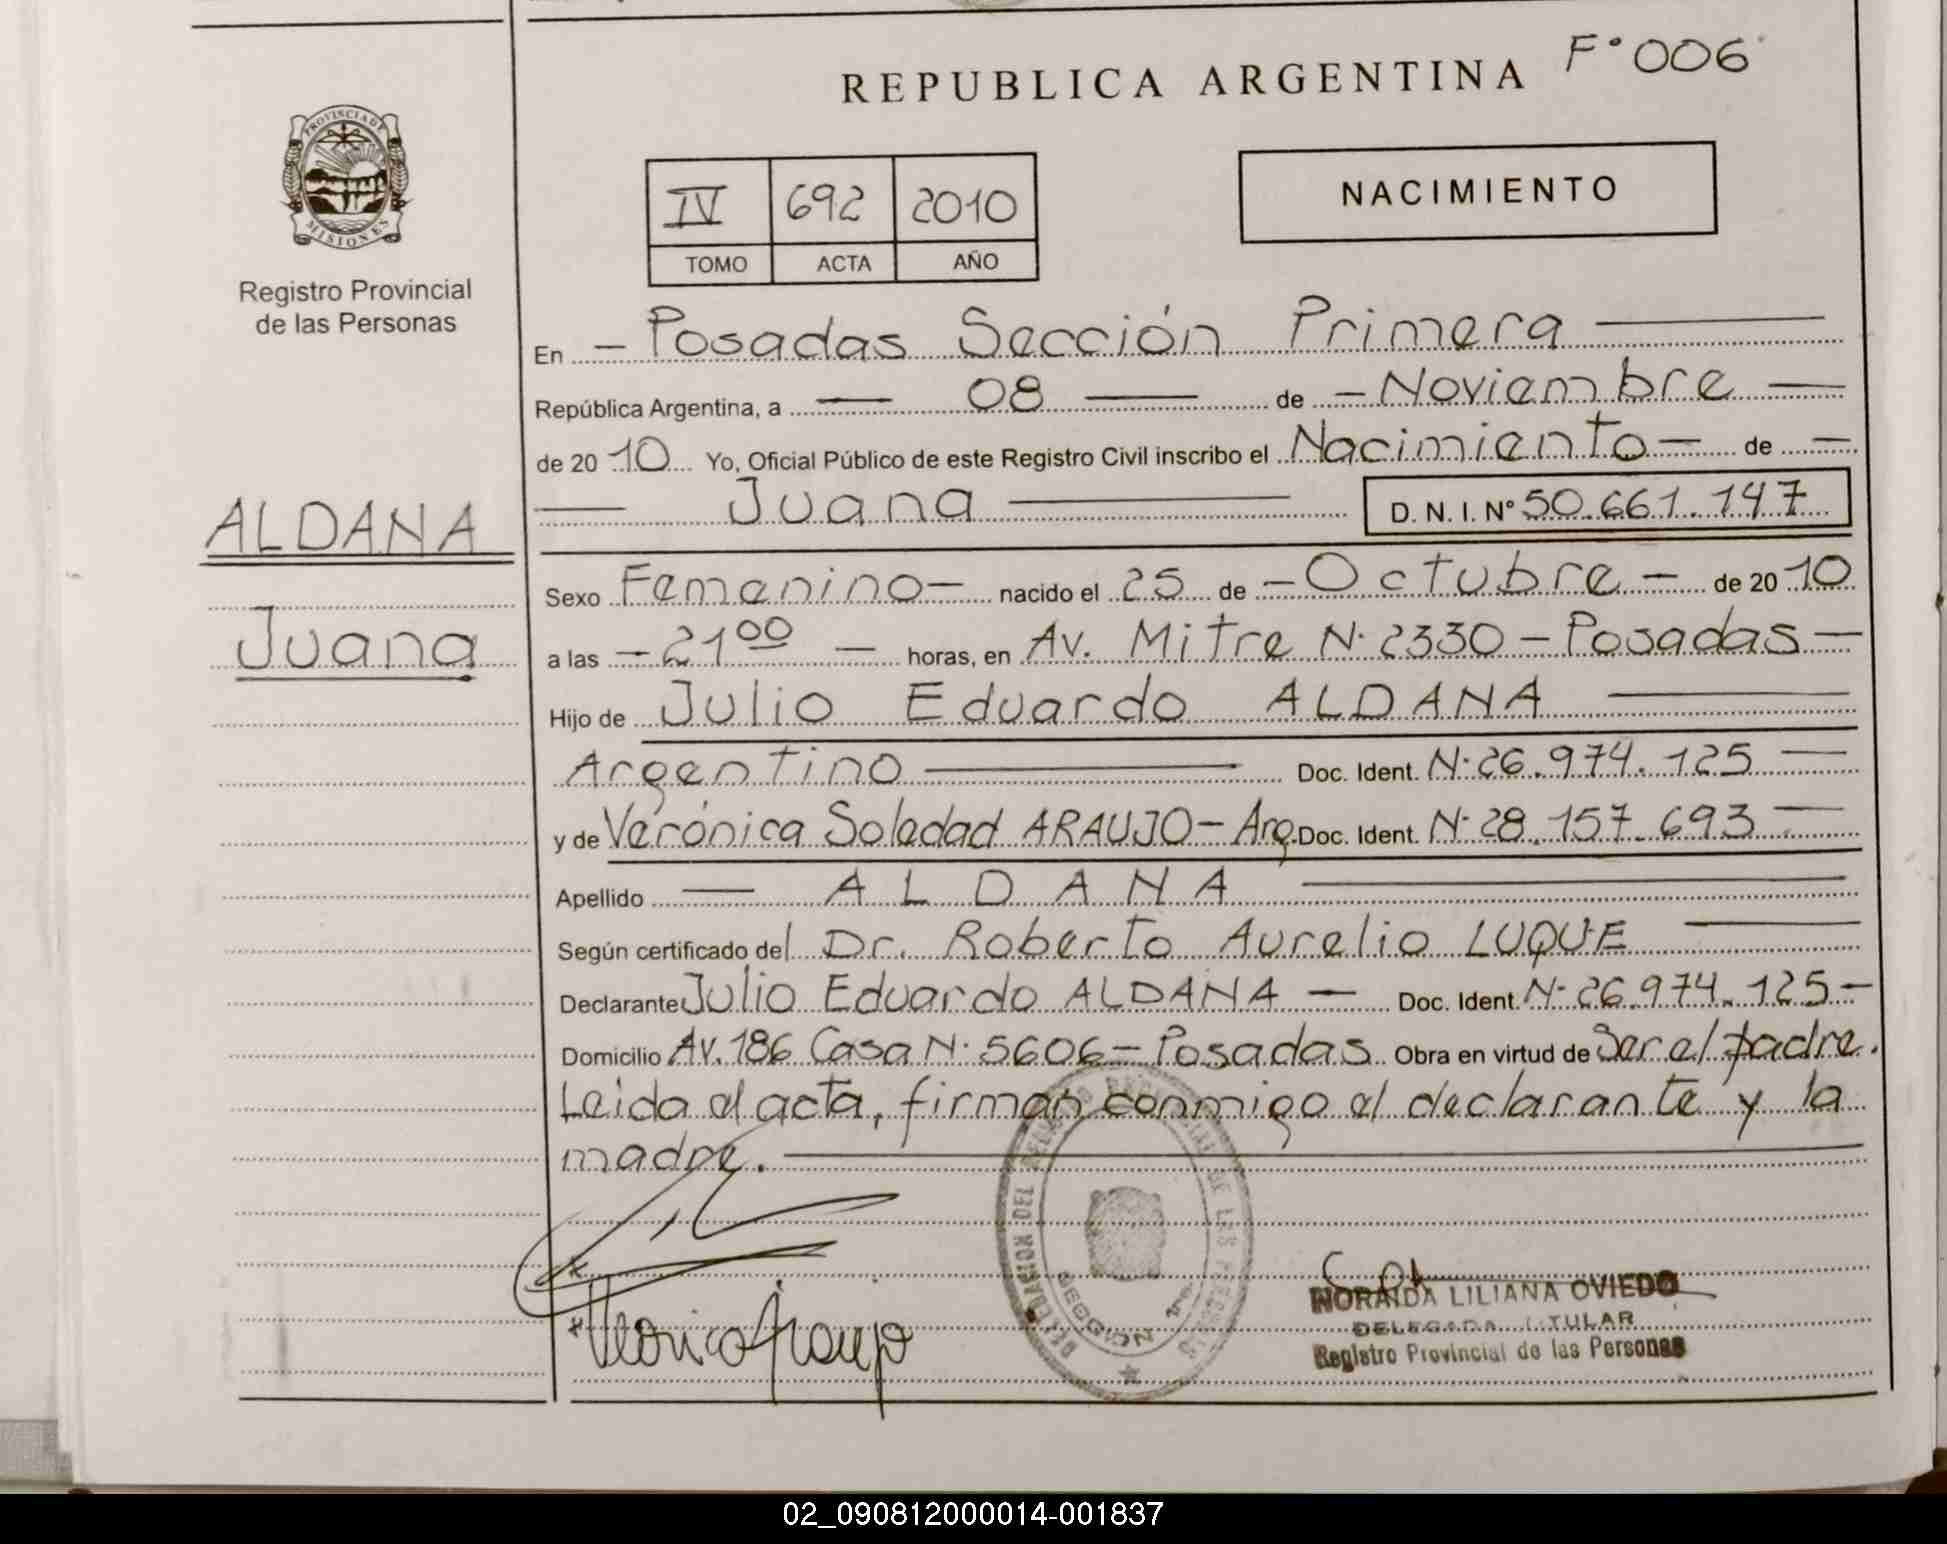 F° 006
REPUBLICA ARGENTINA
PROVINCIA DE
MISIONES
Registro Provincial
de las Personas
IV 692 2010
TOMO ACTA AÑO
NACIMIENTO
En - Posadas Sección Primera
República Argentina, a 08 de - Noviembre
de 2010 Yo, Oficial Público de este Registro Civil inscribo el Nacimiento - de -
Juana D.N.I. N° 50.661.147
ALDANA
Juana
Sexo Femenino - nacido el 25 de - Octubre - de 2010
a las - 21 00 - horas, en Av. Mitre N· 2330 - Posadas -
Hijo de Julio Eduardo ALDANA
Argentino Doc. Ident. N· 26.974.125
y de Verónica Soledad ARAUJO - Arg. Doc. Ident. N· 28.157.693
Apellido ALDANA
Según certificado del Dr. Roberto Aurelio LUQUE
Declarante Julio Eduardo ALDANA - Doc. Ident. N· 26.974.125 -
Domicilio Av. 186 Casa N· 5606 - Posadas Obra en virtud de Ser el padre.
Leida el acta, firman conmigo el declarante y la
madre.
DELEGACION DEL REGISTRO PROVINCIAL DE LAS PERSONAS
Veronica Araujo
NORAIDA LILIANA OVIEDO
DELEGADA TITULAR
Registro Provincial de las Personas
02_090812000014-001837